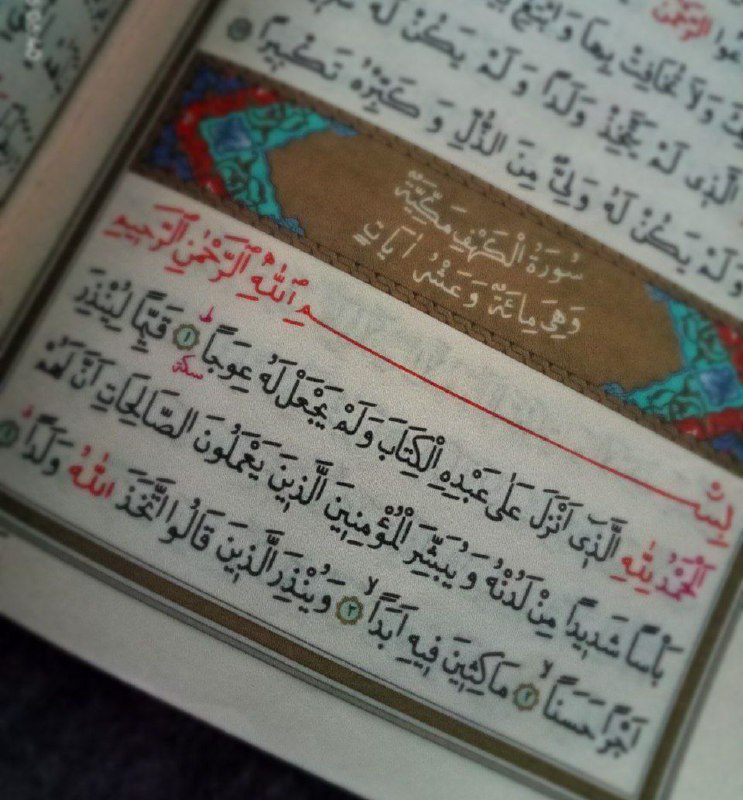 الرَّحْمٰنَ
وَلَا تُخَافِتْ بِهَا وَابْتَغِ
الَّذِى لَمْ يَتَّخِذْ وَلَدًا وَلَمْ يَكُنْ لَهُ
وَلَمْ يَكُنْ لَهُ وَلِىٌّ مِنَ الذُّلِّ وَكَبِّرْهُ تَكْبِيرًا
سُورَةُ الْكَهْفِ مَكِّيَّةٌ
وَهِىَ مِائَةٌ وَعَشْرُ اٰيَاتٍ
بِسْمِ اللّٰهِ الرَّحْمٰنِ الرَّحِيمِ
اَلْحَمْدُ لِلّٰهِ الَّذِٓى اَنْزَلَ عَلٰى عَبْدِهِ الْكِتَابَ وَلَمْ يَجْعَلْ لَهُ عِوَجًا ١ قَيِّمًا لِيُنْذِرَ
سكته
بَأْسًا شَدِيدًا مِنْ لَدُنْهُ وَيُبَشِّرَ الْمُؤْمِنِينَ الَّذِينَ يَعْمَلُونَ الصَّالِحَاتِ اَنَّ لَهُمْ
اَجْرًا حَسَنًا ٢ مَاكِثِينَ فِيهِ اَبَدًا ٣ وَيُنْذِرَ الَّذِينَ قَالُوا اتَّخَذَ اللّٰهُ وَلَدًا